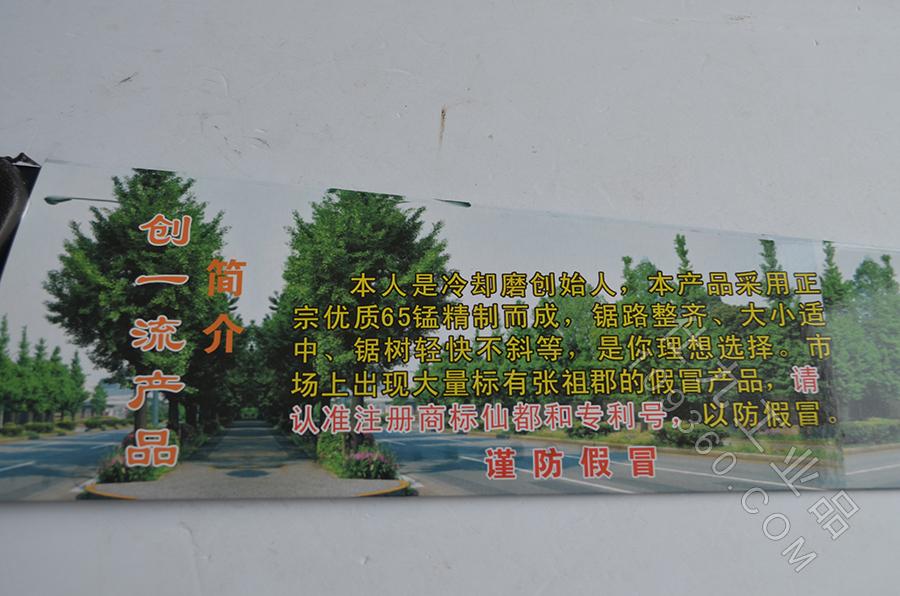 创一流产品
简介
本人是冷却磨创始人，本产品采用正
宗优质65锰精制而成，锯路整齐、大小适
中、锯树轻快不斜等，是你理想选择。市
场上出现大量标有张祖郡的假冒产品，请
认准注册商标仙都和专利号，以防假冒。
谨防假冒
工业品
360.COM